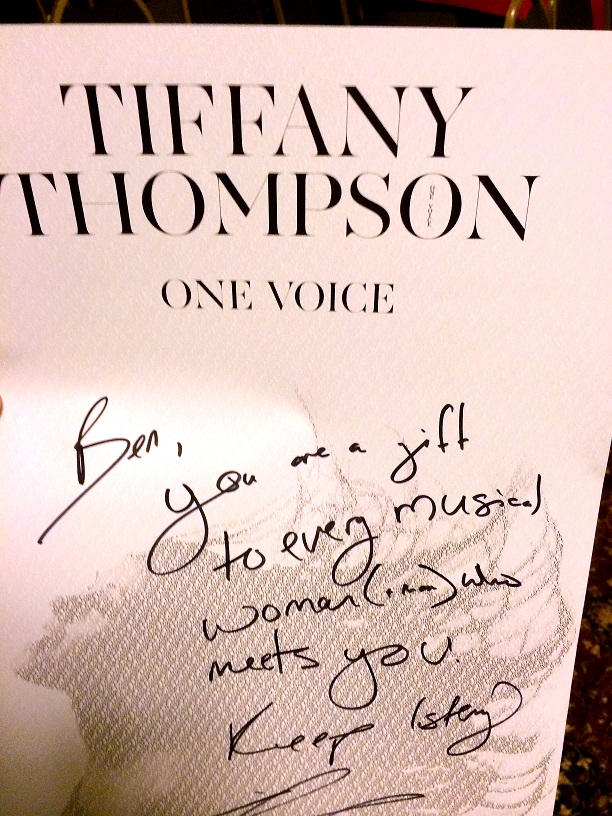 TIFFANY
THOMPSON
ONE VOICE
Ben,
you are a gift
to every musical
woman (+man) who
meets you.
Keep